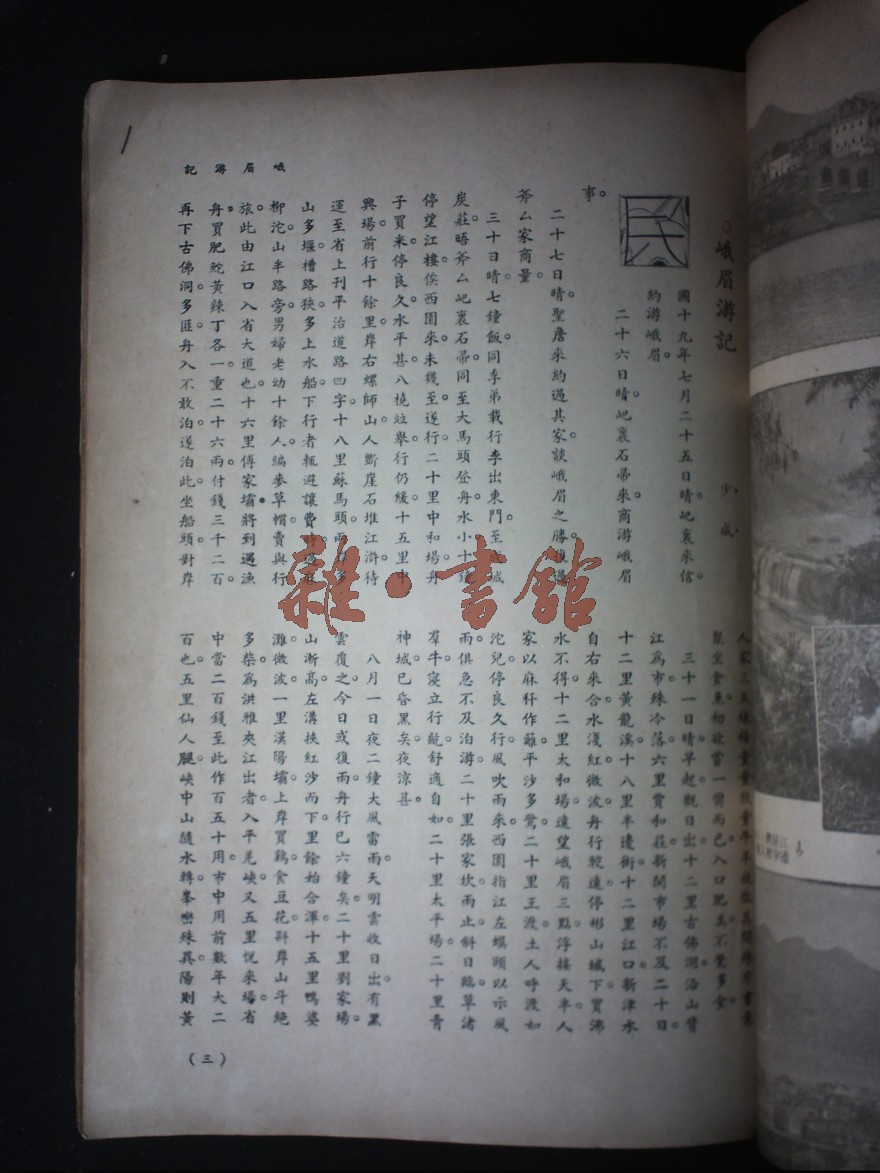 峨眉游記
○峨眉游記
少咸
民
國十九年七月二十五日晴。屺裏來信
約游峨眉。
二十六日晴。屺裏石帚來。商游峨眉
事。
二十七日晴。聖詹來約過其家。談峨眉之勝。復過
斧厶家商量。
三十日晴。七鐘飯。同季弟載行李出東門。至
炭莊晤斧厶屺裏石帚。同至大馬頭登舟。水小
停望江樓。俟西園來。未幾至。遂行。二十里中和場。舟
子買米。停良久。水平甚。八橈竝舉。行仍緩。十五里中
興場。前行十餘里。岸右螺師山。人斷崖石堆江滸。待
運至省上。刊平治道路四字。十八里蘇馬頭。兩岸多
山多堰槽。路狹。多上水船。下行者輒避讓。費
柳沱。山半路旁。男婦老幼十餘人。編麥草帽賣與行
旅。此由江口入省大道也。十六里傅家壩。將到遇漁
舟。買肥鮀黃辣丁各一。重二十六兩。付錢三千二百
再下古佛洞。多匪。舟入不敢泊。遂泊此。坐船頭。對岸
人家三五
聚坐食魚。初欲嘗一臠而已。入口肥美。不覺多食。
三十一日晴。早起觀日出。十二里古佛洞。沿山背
江爲市。殊冷落。六里賈和莊。新開市場。不及二十日
十二里黃龍溪。十八里半邊街。十二里江口。新津水
自右來合。水淺紅微波。舟行較速。停彬山城下。買沸
水不得。十二里太和場。遠望峨眉三點。浮接天半。人
家以麻秆作籬。平沙多鷺。二十里王渡。土人呼渡如
沱兒。停良久行。風吹雨來。西園指江左蟆頤以示。風
雨俱急。不及泊游。二十里張家坎。雨止。斜日臨草渚
羣牛寢立行齕。舒適自如。二十里太平場。二十里青
神城。已昏黑矣。夜涼甚。
八月一日夜二鐘。大風雷雨。天明雲收日出。有黑
雲覆之。今日或復雨。舟行已六鐘矣。二十里劉家場。
山漸高。左溝挾紅沙而下。里餘始合渾。十五里鴨婆
灘微波。一里漢陽壩。上岸買鷄食豆花。斟岸山斗絕
多柴。爲洪雅夾江出者。入平羌峽。又五里悅來場。省
中當二百錢至此作百五十用。市中用前數年大二
百也。五里仙人腿峽中。山隨水轉。峯巒殊異。陽則黃
（三）
雜·書館